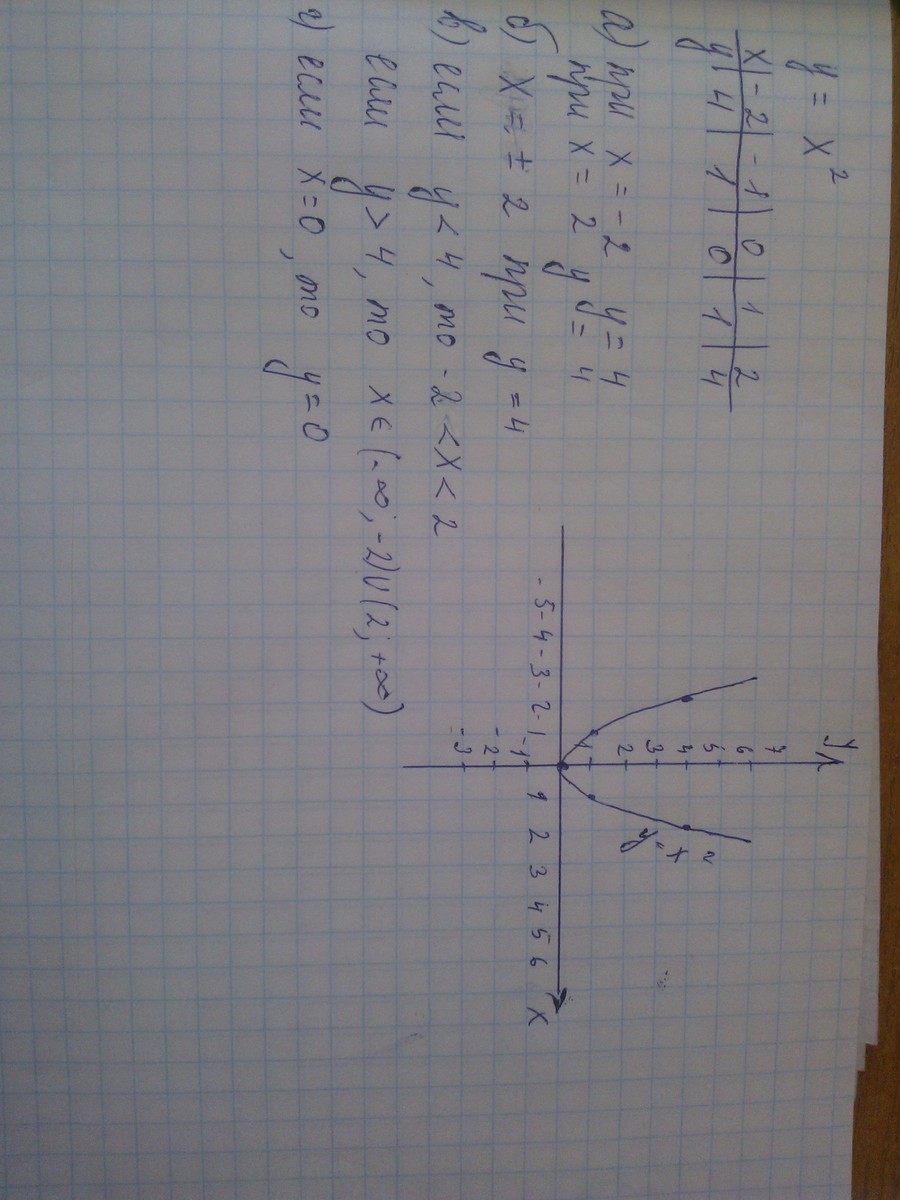 y = x²
x | -2 | -1 | 0 | 1 | 2
y | 4 | 1 | 0 | 1 | 4
а) при x = -2 y = 4
при x = 2 y = 4
б) x = ± 2 при y = 4
в) если y < 4, то -2 < x < 2
если y > 4, то x ∈ (-∞; -2) ∪ (2; +∞)
г) если x = 0, то y = 0
y
7
6
5
4
3
2
1
y = x²
-5 -4 -3 -2 -1 1 2 3 4 5 6 x
-1
-2
-3